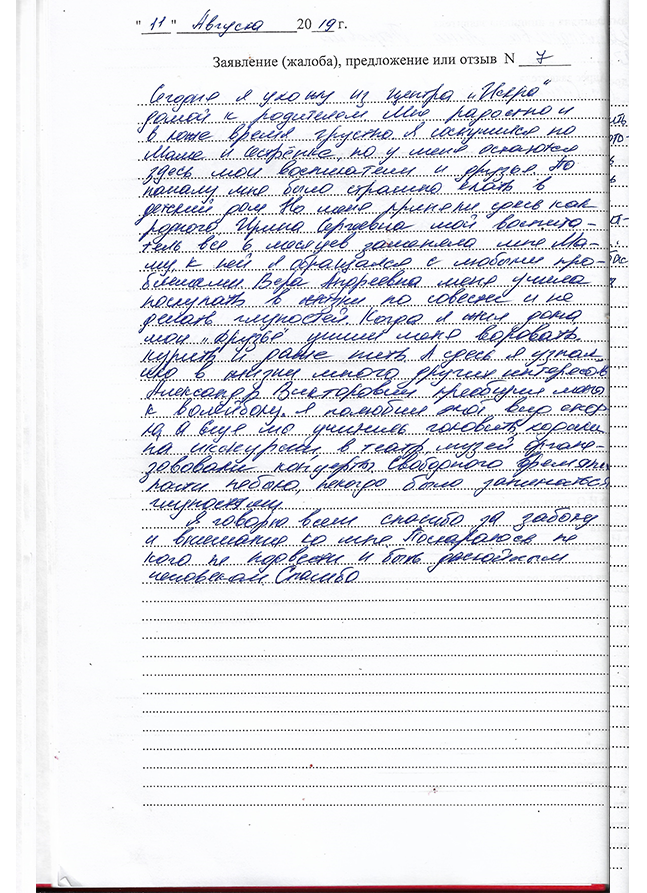 "11" Августа 2019 г.
Заявление (жалоба), предложение или отзыв N 7
Сегодня я ухожу из центра „Искра"
домой к родителям Мне радостно и
в тоже время грустно. Я соскучился по
Маме и сестрёнке, но у меня остаются
здесь мои воспитатели и друзья. По
началу мне было страшно ехать в
детский дом Но меня приняли здесь как
родного. Ирина Сергеевна мой воспита-
тель все 6 месяцев заменяла мне Ма-
му к ней я обращался с любыми про-
блемами. Вера Андреевна меня учила
поступать в жизни по совести и не
делать глупостей. Когда я жил дома
мои „друзья" учили меня воровать
курить и даже пить. А здесь я узнал
что в жизни много других интересов
Александр Викторович приобщил меня
к волейболу. Я полюбил этот вид спор-
та, А еще мы учились готовить, ходили
на экскурсии, в театр, музей органи-
зовывали концерты. Свободного времяни
почти небыло, некогда было заниматся
глупостями
Я говорю всем спасибо за заботу
и внимание ко мне Постараюсь не
кого не подвести и быть достойным
человеком. Спасибо